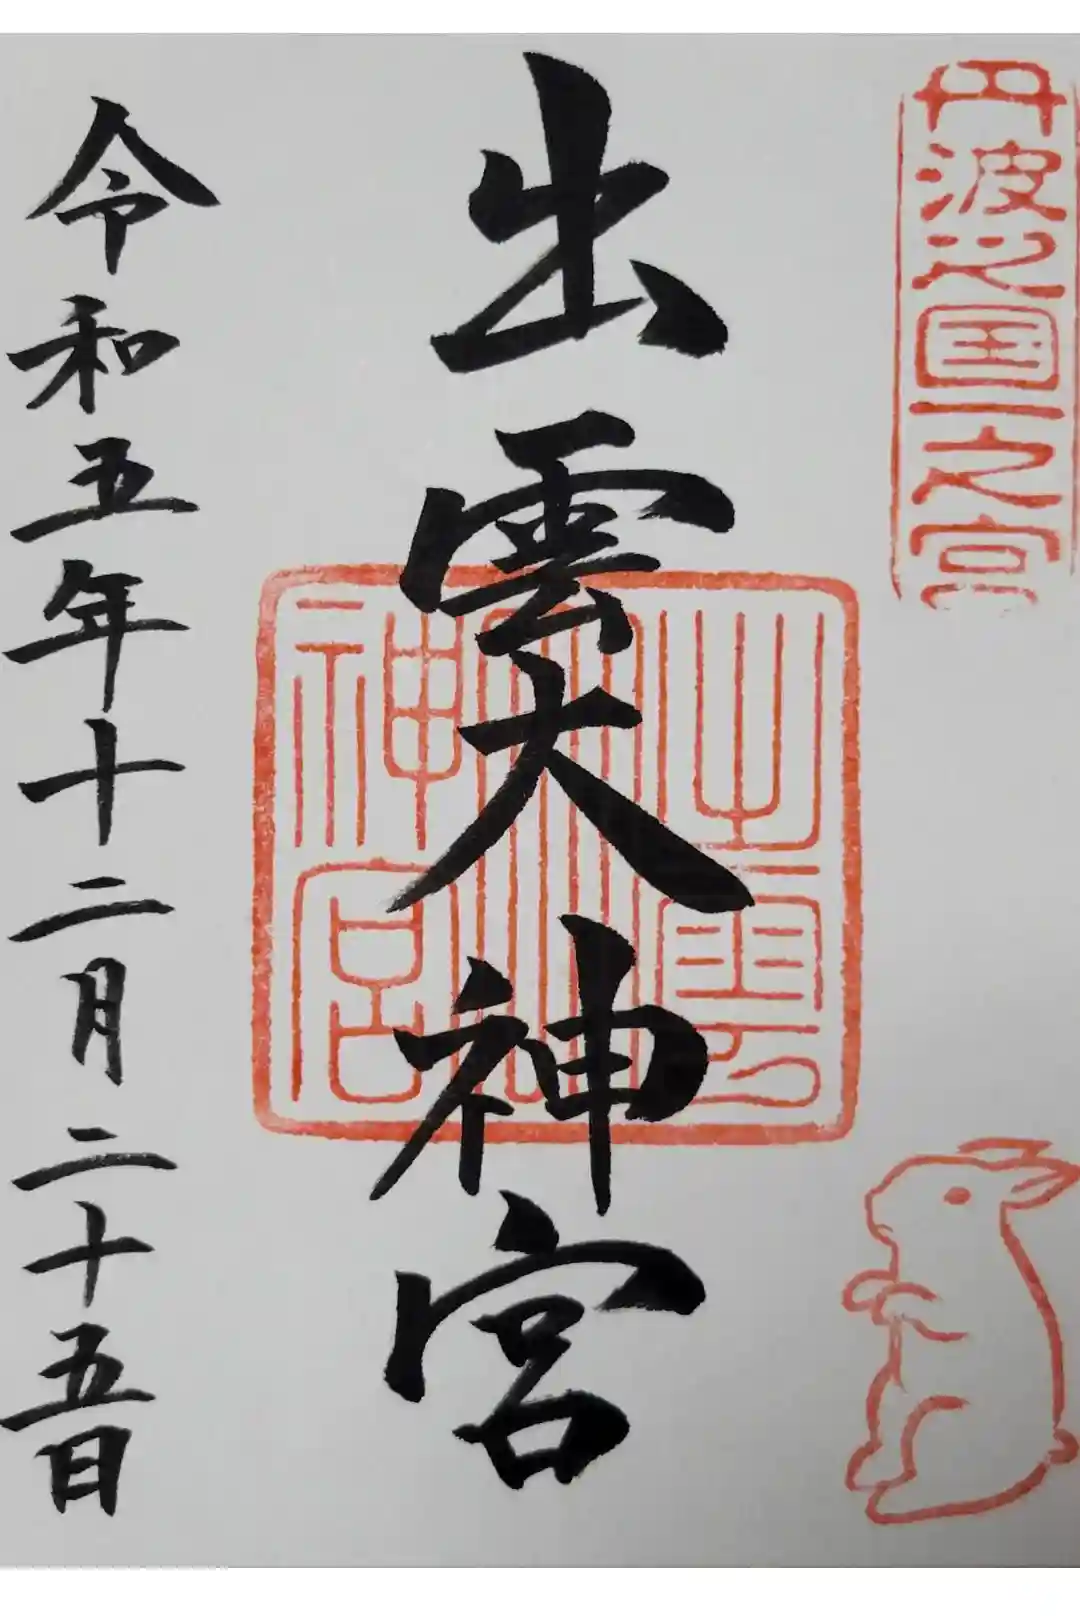 丹波之国一之宮
出雲大神宮
出雲
大
神宮
令和五年十二月二十五日